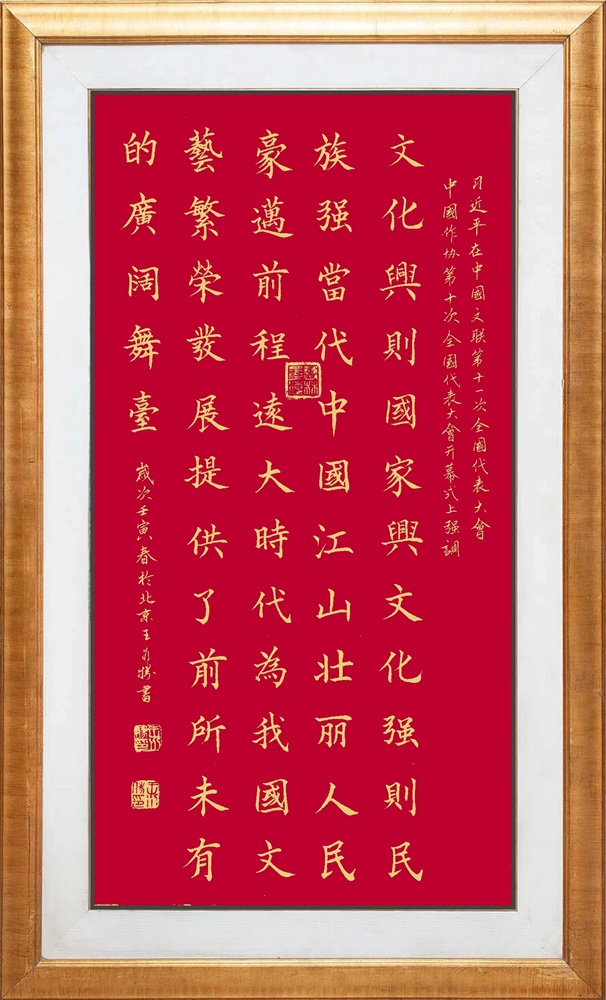 习近平在中國文联第十一次全國代表大會
中國作协第十次全國代表大會开幕式上强調
文化興則國家興文化强則民
族强當代中國江山壮丽人民
豪邁前程遠大時代為我國文
藝繁榮發展提供了前所未有
的廣阔舞臺
歲次壬寅春於北京王勝書